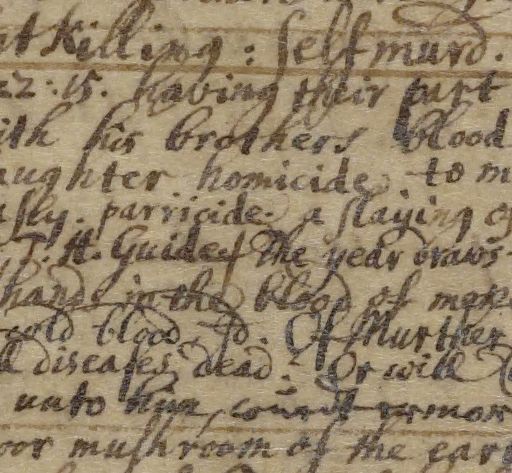 at Killing: Selfmurd.
22:15. having their part
ith his brothers blood
aughter. homicide. to m
usly. parricide. a slaying of
T. H. Guide of The year draws
hands in the blood of
cold blood. Of Murther
diseases dead? Or will
unto him, count
oor mushroom of the eart